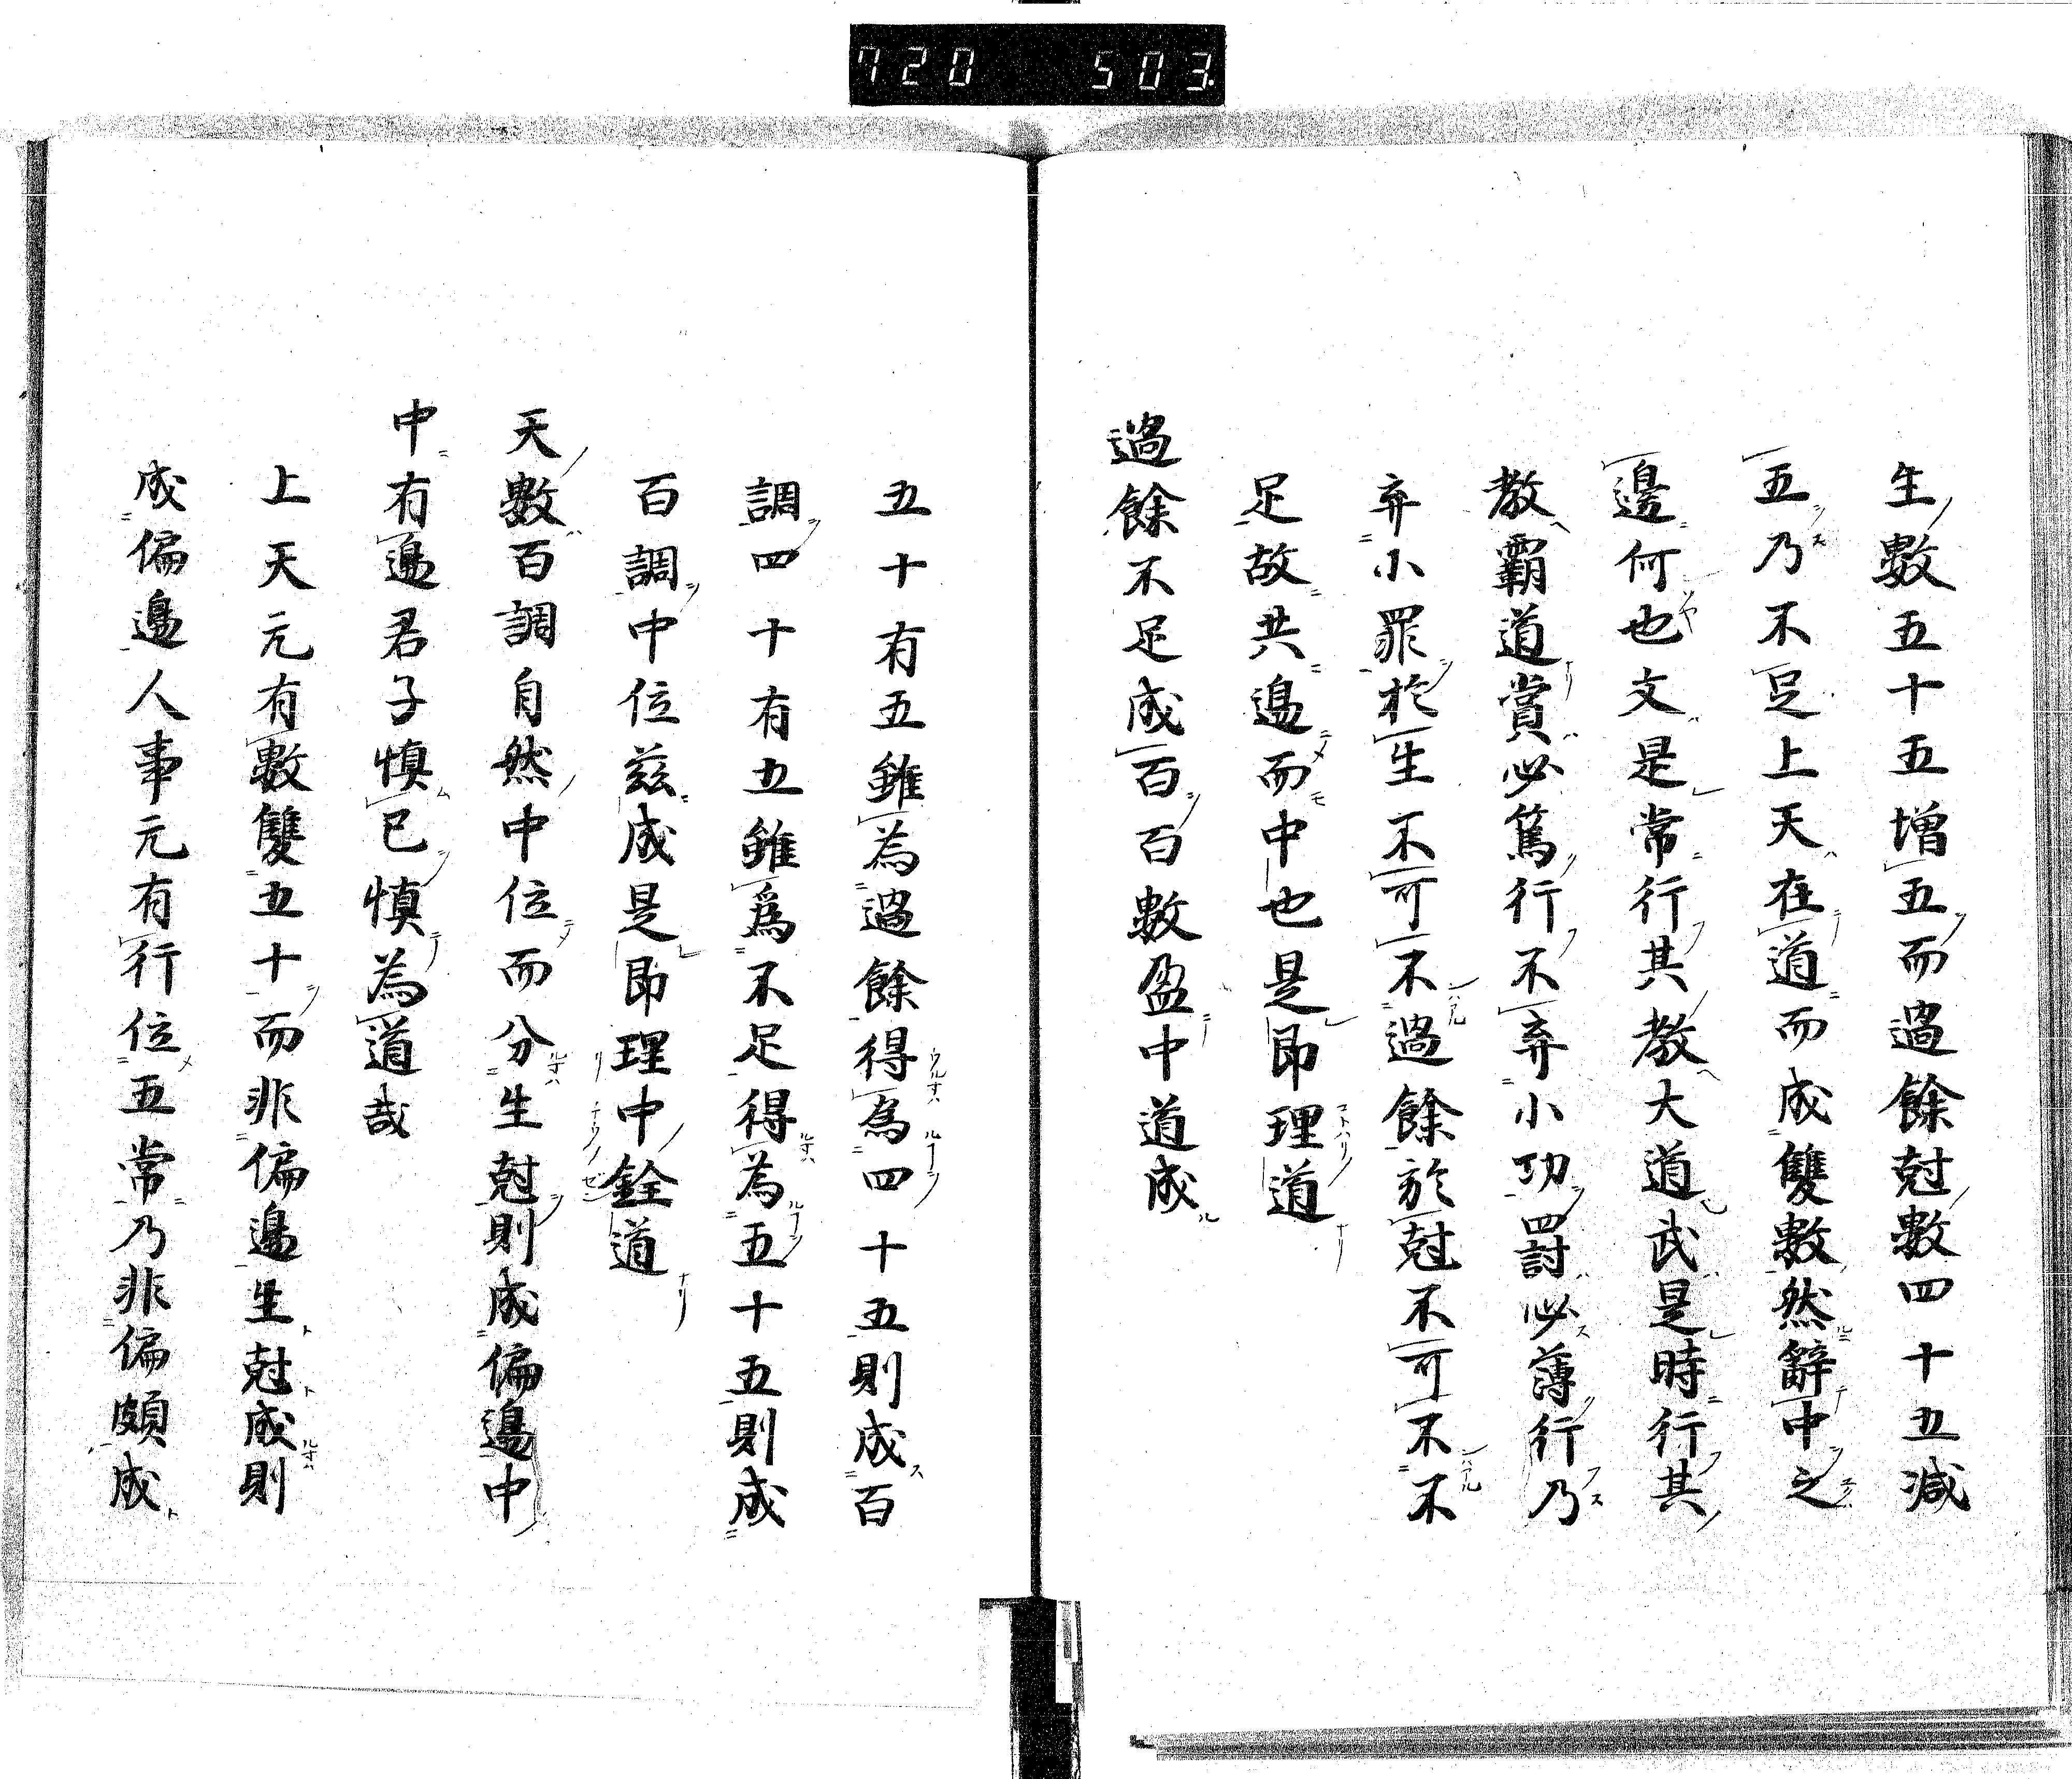 720 503
生數五十五増五而過餘尅數四十五減
五乃不足上天在道而成雙數然辭中之
邊何也文是常行其教大道武是時行其
教霸道賞必篤行不弃小功罰必薄行乃
弃小罪於生不可不過餘於尅不可不不
足故共邊而中也是即理道
過餘不足成百百數盈中道成
五十有五雖為過餘得為四十五則成百
調四十有五雖爲不足得為五十五則成
百調中位茲成是即理中銓道
天數百調自然中位而分生尅則成偏邊中
中有邊君子慎已慎為道哉
上天元有數雙五十而非偏邊生尅成則
成偏邊人事元有行位五常乃非偏頗成